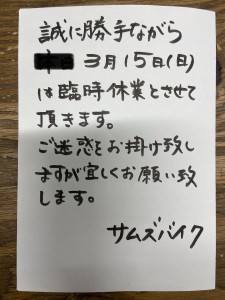 誠に勝手ながら
3月15日(日)
は臨時休業とさせて
頂きます。
ご迷惑をお掛け致し
ますが宜しくお願い致
します。
サムズバイク